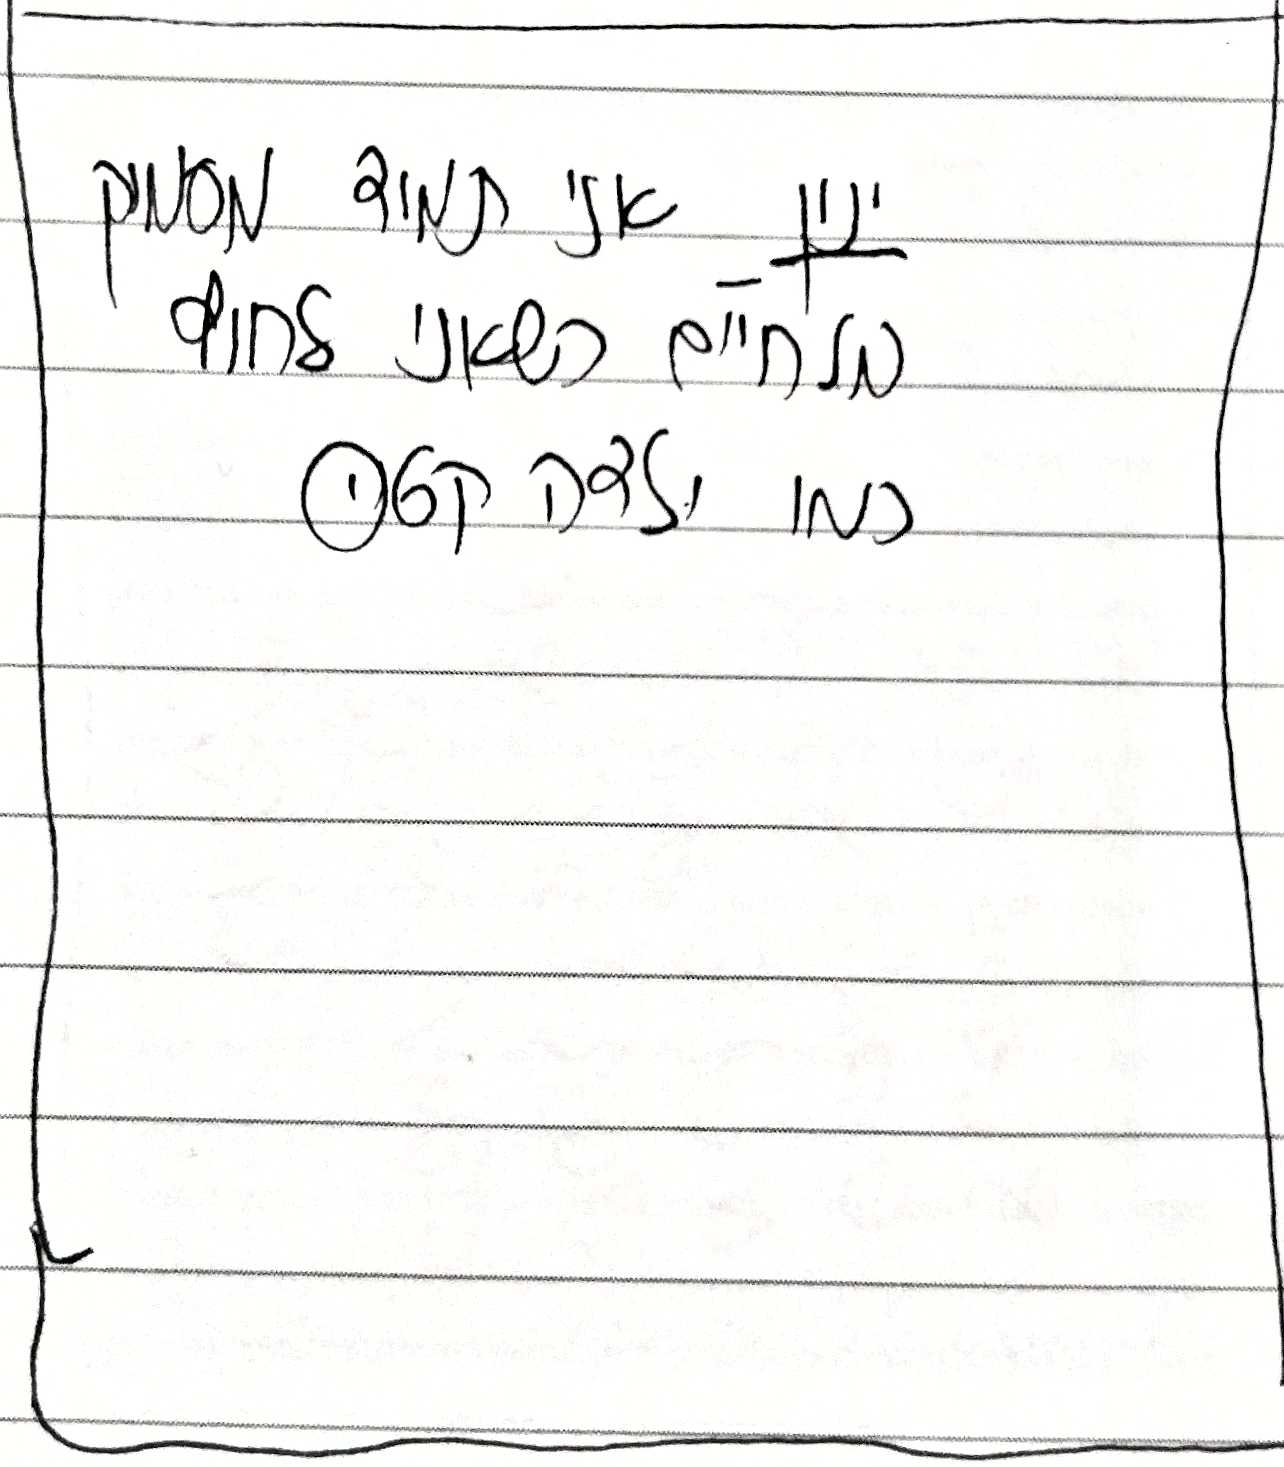 ינון - אני תמיד מסמיק
מלחיים כשאני לחוץ
כמו ילדה קטנה